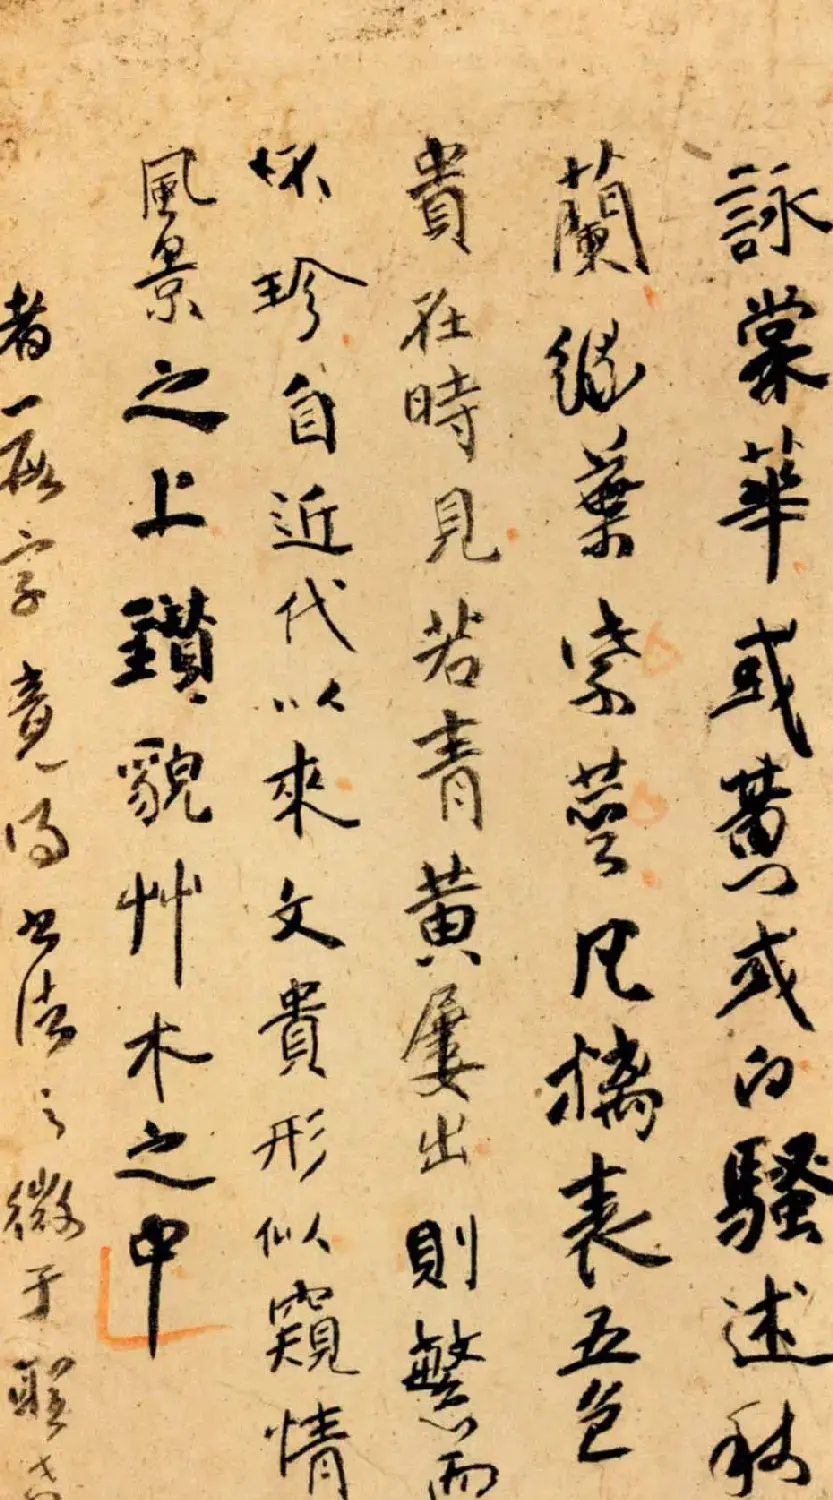 詠棠華或黃或白騷述秋
蘭緑葉紫莖凡摛表五色
貴在時見若青黃屢出則繁而
怀珍自近代以來文貴形似窺情
風景之上鑽貌艸木之中
者一字竟得書法之微于